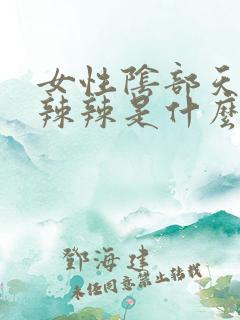 女性陰部天
辣辣是什麼
鄧海建
未任同意禁止转载